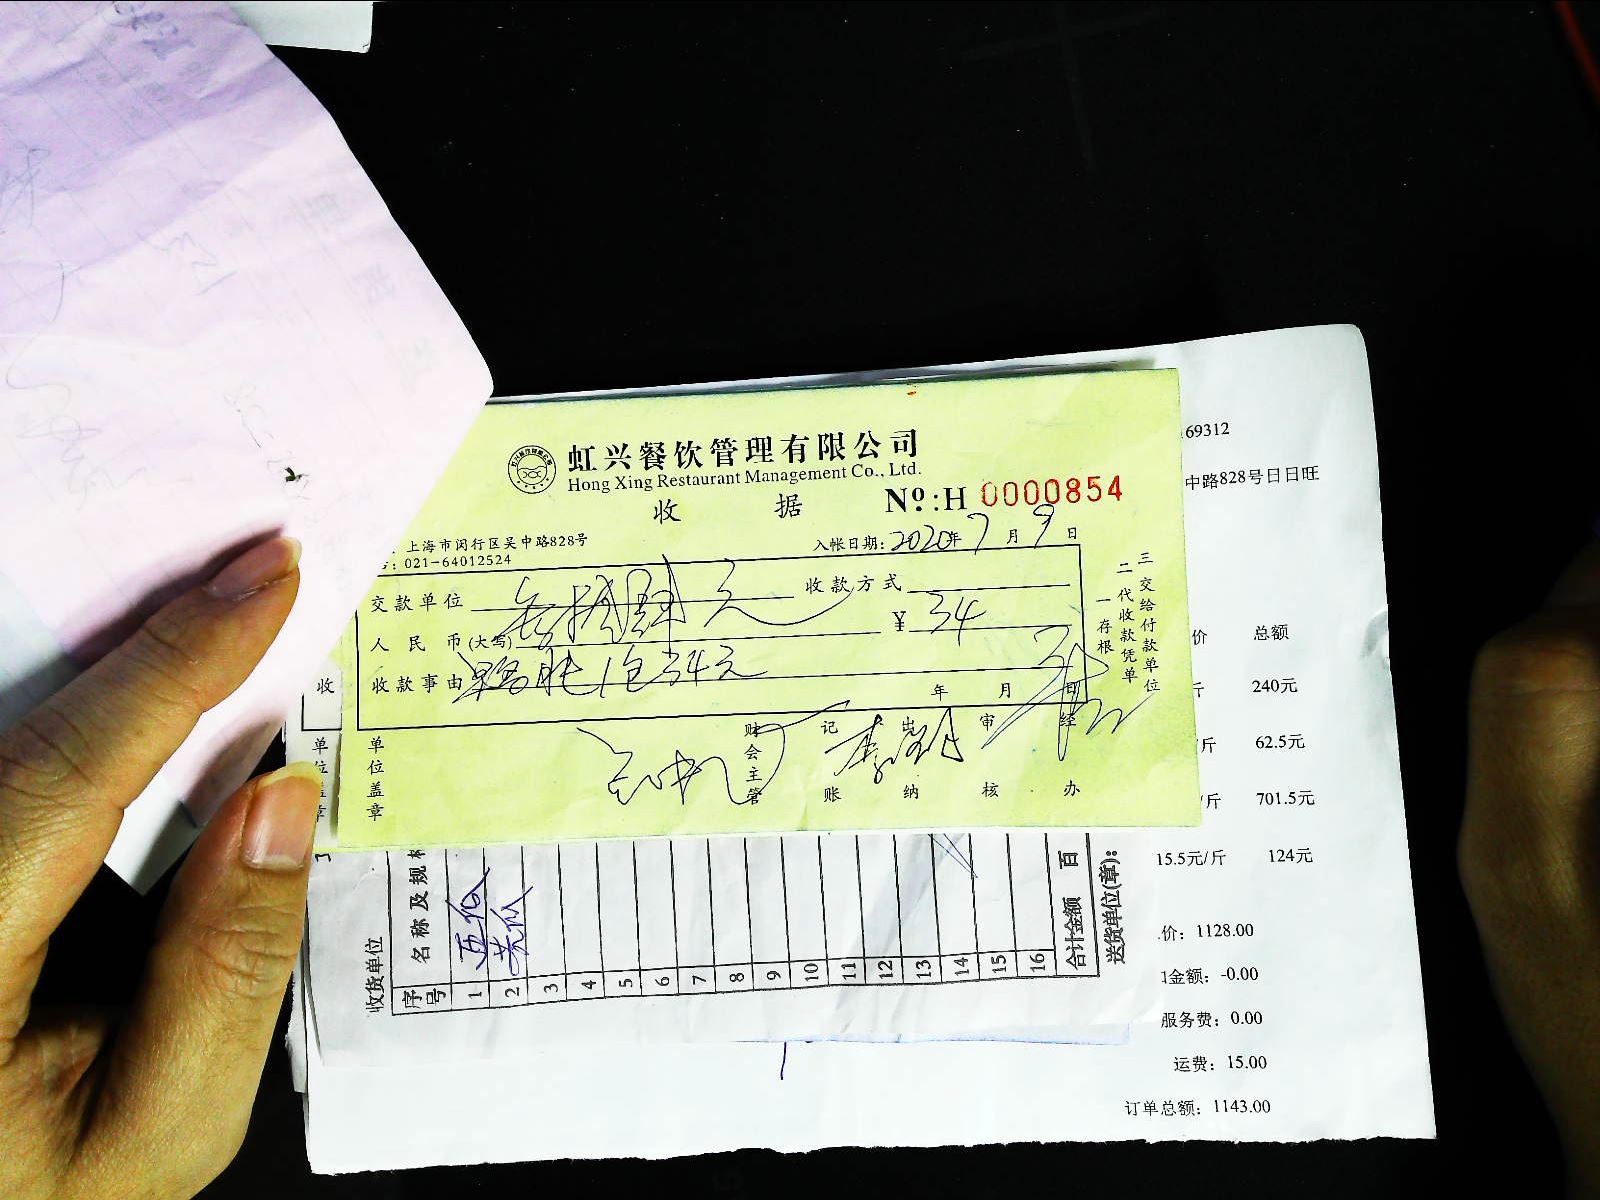 虹兴餐饮管理有限公司
Hong Xing Restaurant Management Co., Ltd.
收 据
Nº:H 0000854
上海市闵行区吴中路828号
021-64012524
入帐日期: 2020年7月9日
交款单位
收款方式
人民币(大写) 叁拾肆元
¥ 34
收款事由 1包34元
年 月 日
一存根
二代收款凭单
三交给付款单位
单位盖章
财会主管
记账
出纳
审核
经办
收
单位盖章
69312
中路828号日日旺
价 总额
斤 240元
/斤 62.5元
/斤 701.5元
15.5元/斤 124元
价: 1128.00
金额: -0.00
服务费: 0.00
运费: 15.00
订单总额: 1143.00
收货单位
序号
名称及规格
1
2
3
4
5
6
7
8
9
10
11
12
13
14
15
16
合计金额 百
送货单位(章):